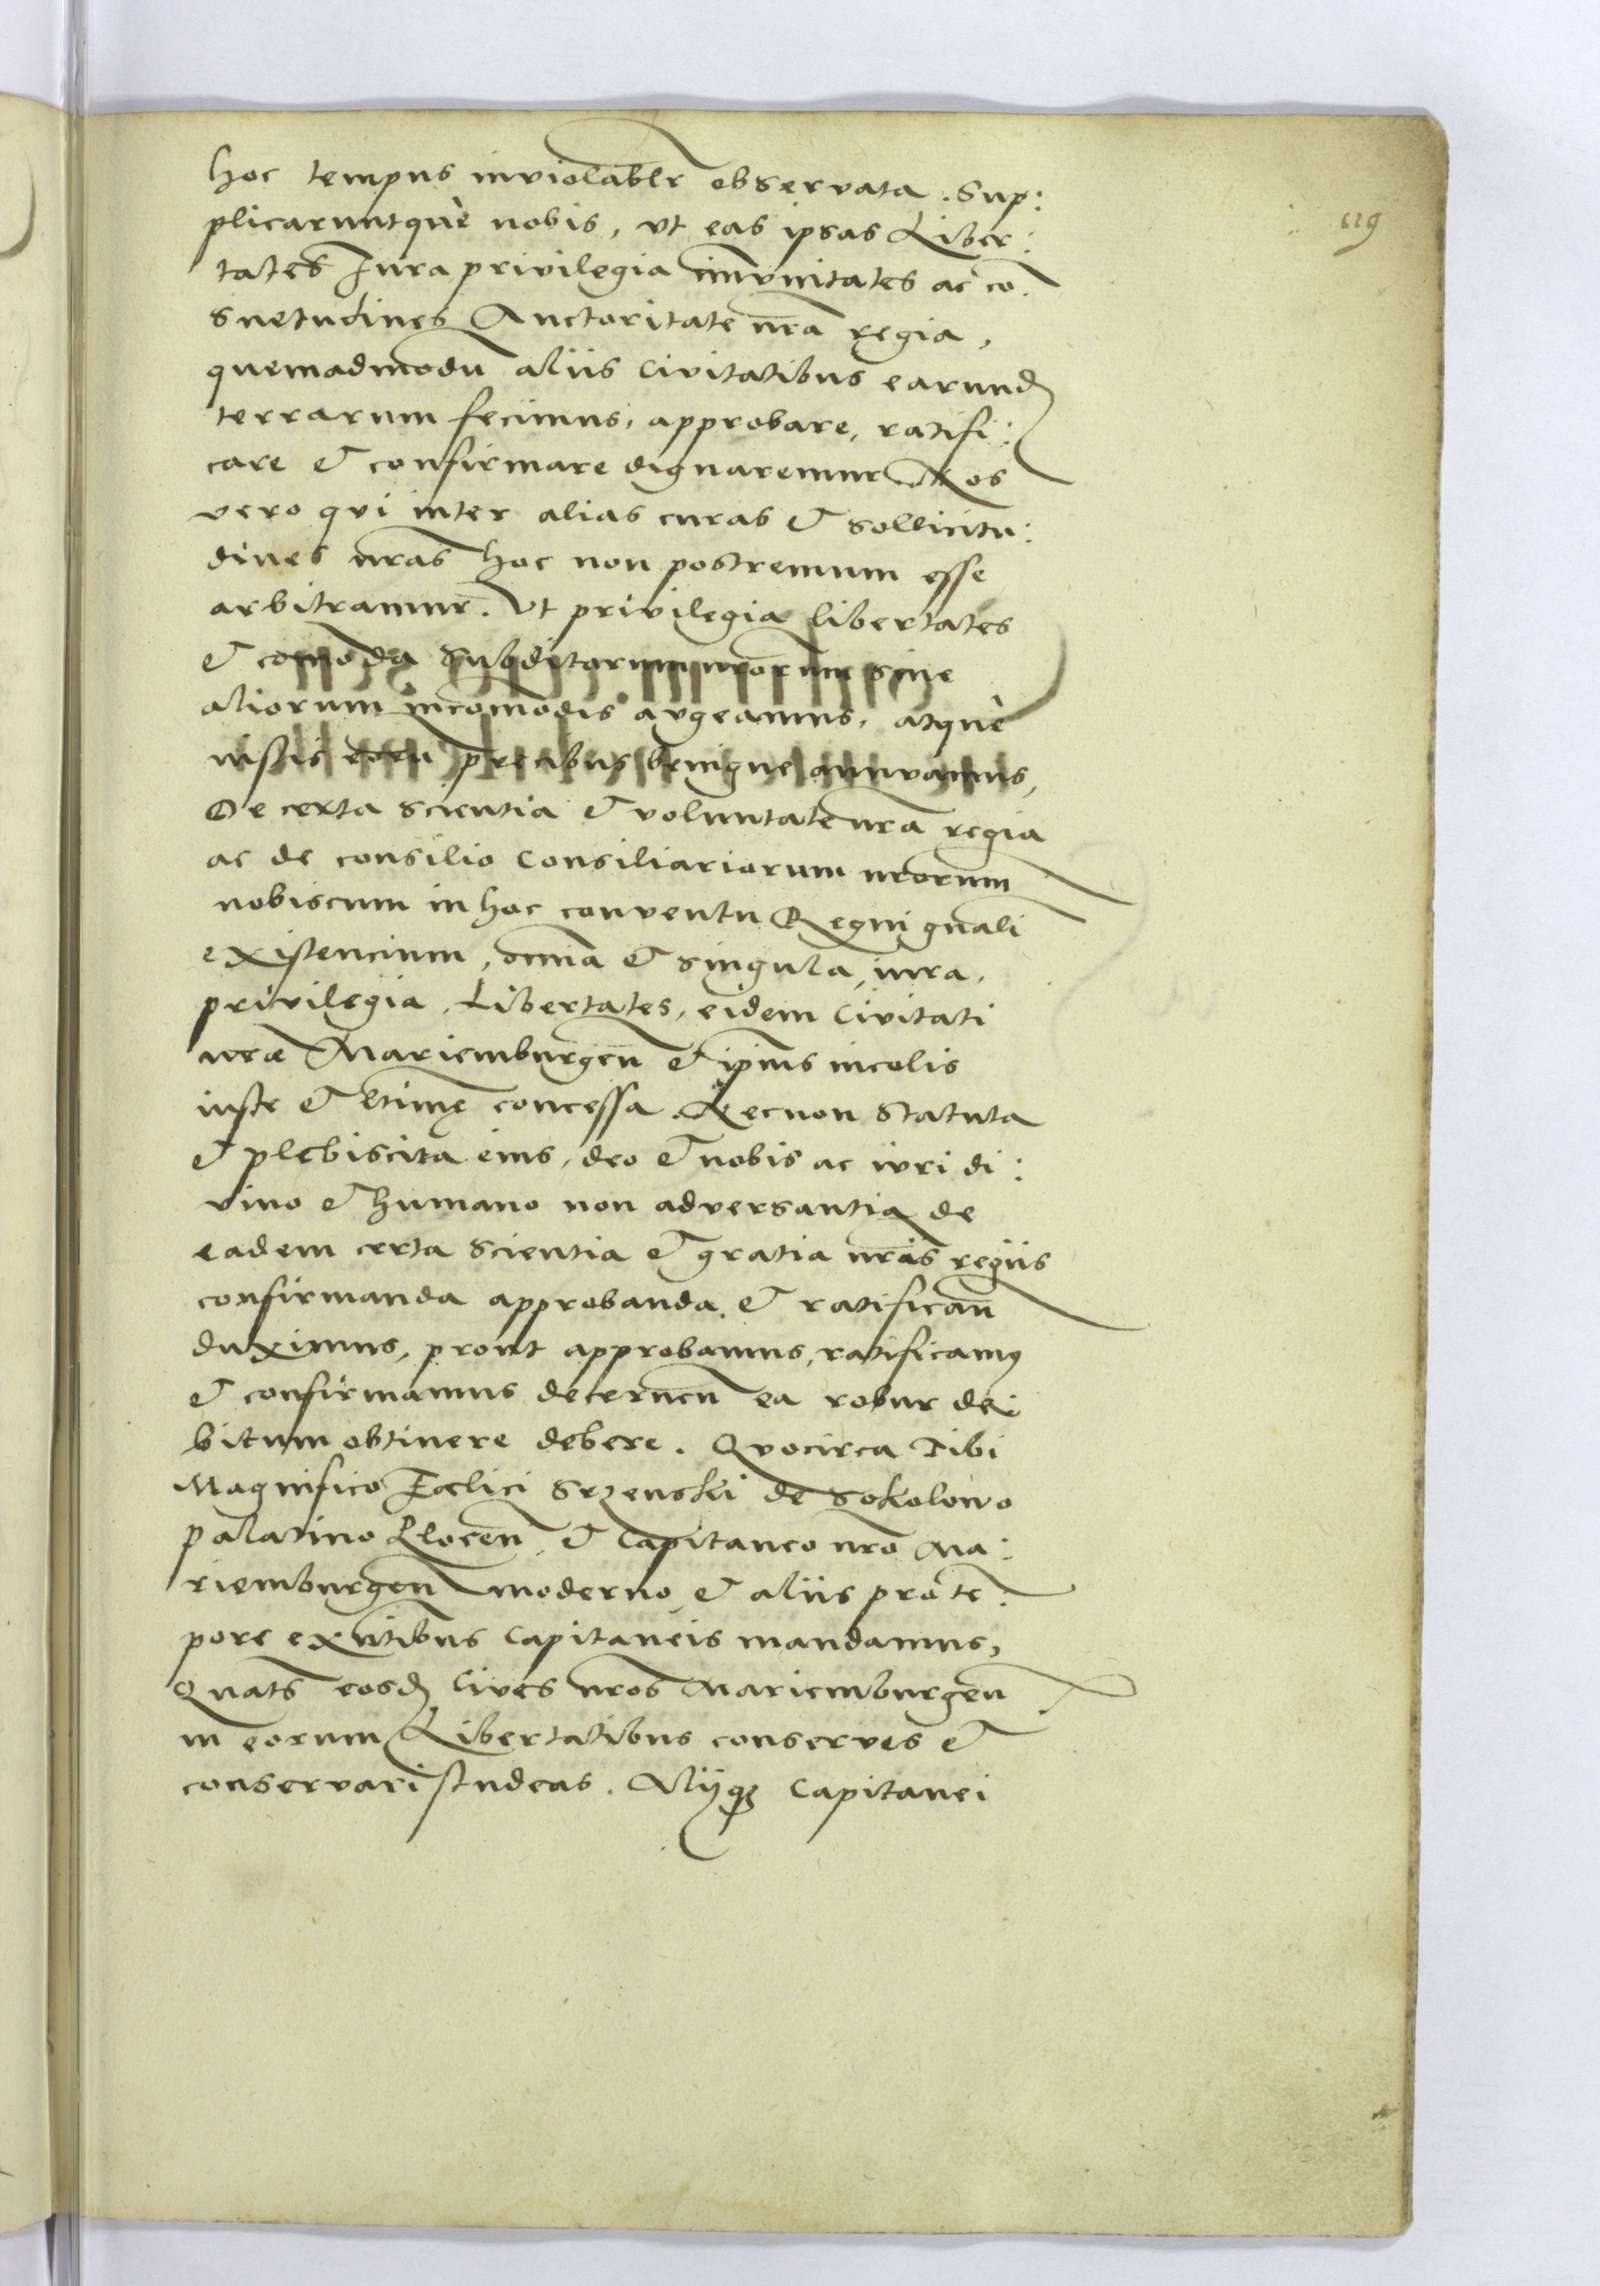 hoc tempus inviolablr observata . Sup:
plicaruntquè nobis, vt eas ipsas Liber:
tates Iura privilegia im̄vnitates ac cō
suetudines Auctoritate nr̄a regia,
quemadmodū aliis Civitatibus earund
terrarum fecimus, approbare, ratifi:
care & confirmare dignaremur Nos
vero qvi inter alias curas & sollicitu:
dines nr̄as hoc non postremum esse
arbitramur. Vt privilegia libertates
& com̄oda Subditorum nr̄orum sine
aliorum incom̄odis avgeamus, atquè
iustis eorū precibus benigne annvamus,
De certa scientia & voluntate nr̄a regia
ac de consilio Consiliariorum nr̄orum
nobiscum in hoc conventu Regni gn̄ali
existencium, om̄ia & singula, iura,
privilegia, Libertates, eidem Civitati
nr̄æ Mariemburgeñ & ip̄ius incolis
iuste & l̄time concessa. Necnon Statuta
& plebiscita eius, deo & nobis ac ivri di:
vino & humano non adversantia de
eadem certa scientia & gratia nr̄is regiis
confirmanda approbanda & ratificañ
duximus, prout approbamus, ratificamus
& confirmamus decerneñ ea robur de:
bitum obtinere debere. Qvocirca Tibi
Magnifico Fœlici Srzenski de Sokolowo
palatino Ploceñ & Capitaneo nr̄o Ma:
riemburgeñ moderno, & aliis pro tē:
pore ex̄ntibus Capitaneis mandamus,
Quats̄ eosd Cives nr̄os Mariemburgeñ
in eorum Libertatibus conserves &
conservari studeas. Aliiq3 Capitanei